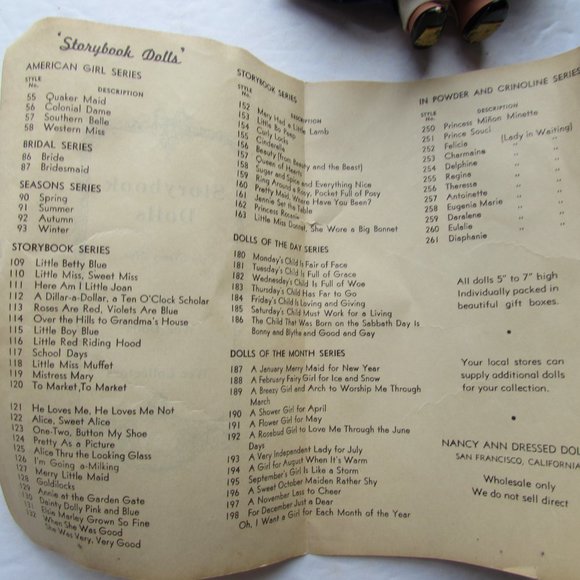 "Storybook Dolls"
AMERICAN GIRL SERIES
STYLE No. DESCRIPTION
55 Quaker Maid
56 Colonial Dame
57 Southern Belle
58 Western Miss
BRIDAL SERIES
86 Bride
87 Bridesmaid
SEASONS SERIES
90 Spring
91 Summer
92 Autumn
93 Winter
STORYBOOK SERIES
109 Little Betty Blue
110 Little Miss, Sweet Miss
111 Here Am I Little Joan
112 A Dillar-a-Dollar, a Ten O'Clock Scholar
113 Roses are Red, Violets Are Blue
114 Over the Hills to Grandma's House
115 Little Boy Blue
116 Little Red Riding Hood
117 School Days
118 Little Miss Muffet
119 Mistress Mary
120 To Market, To Market
121 He Loves Me, He Loves Me Not
122 Alice, Sweet Alice
123 One-Two, Button My Shoe
124 Pretty As a Picture
125 Alice Thru the Looking Glass
126 I'm Going a-Milking
127 Merry Little Maid
128 Goldilocks
129 Annie at the Garden Gate
130 Dainty Dolly Pink and Blue
131 Elsie Marley Grown So Fine
132 When She Was Good
She Was Very, Very Good
STORYBOOK SERIES
STYLE No. DESCRIPTION
152 Mary Had a Little Lamb
153 Little Bo Peep
154 Curly Locks
155 Cinderella
156 Beauty (from Beauty and the Beast)
157 Queen of Hearts
158 Sugar and Spice and Everything Nice
159 Ring Around a Rosy, Pocket Full of Posy
160 Pretty Maid, Where Have You Been?
161 Jennie Set the Table
162 Princess Rosanie
163 Little Miss Donnet, She Wore a Big Bonnet
DOLLS OF THE DAY SERIES
180 Monday's Child Is Fair of Face
181 Tuesday's Child Is Full of Grace
182 Wednesday's Child Is Full of Woe
183 Thursday's Child Has Far to Go
184 Friday's Child Is Loving and Giving
185 Saturday's Child Must Work for a Living
186 The Child That Was Born on the Sabbath Day Is
Bonny and Blythe and Good and Gay
DOLLS OF THE MONTH SERIES
187 A January Merry Maid for New Year
188 A February Fairy Girl for Ice and Snow
189 A Breezy Girl and Arch to Worship Me Through
March
190 A Shower Girl for April
191 A Flower Girl for May
192 A Rosebud Girl to Love Me Through the June
Days
193 A Very Independent Lady for July
194 A Girl for August When It's Warm
195 September's Girl Is Like a Storm
196 A Sweet October Maiden Rather Shy
197 A November Lass to Cheer
198 For December Just a Dear
Oh, I Want a Girl for Each Month of the Year
IN POWDER AND CRINOLINE SERIES
STYLE No. DESCRIPTION
250 Princess Miñon Minette
251 Prince Souci
252 Felicia (Lady in Waiting)
253 Charmaine " "
254 Delphine " "
255 Regina " "
256 Theresse " "
257 Antoinette " "
258 Eugenia Marie " "
259 Deralene " "
260 Eulalie " "
261 Diaphanie " "
All dolls 5" to 7" high
Individually packed in
beautiful gift boxes.
Your local stores can
supply additional dolls
for your collection.
NANCY ANN DRESSED DOL
SAN FRANCISCO, CALIFORNIA
Wholesale only
We do not sell direct